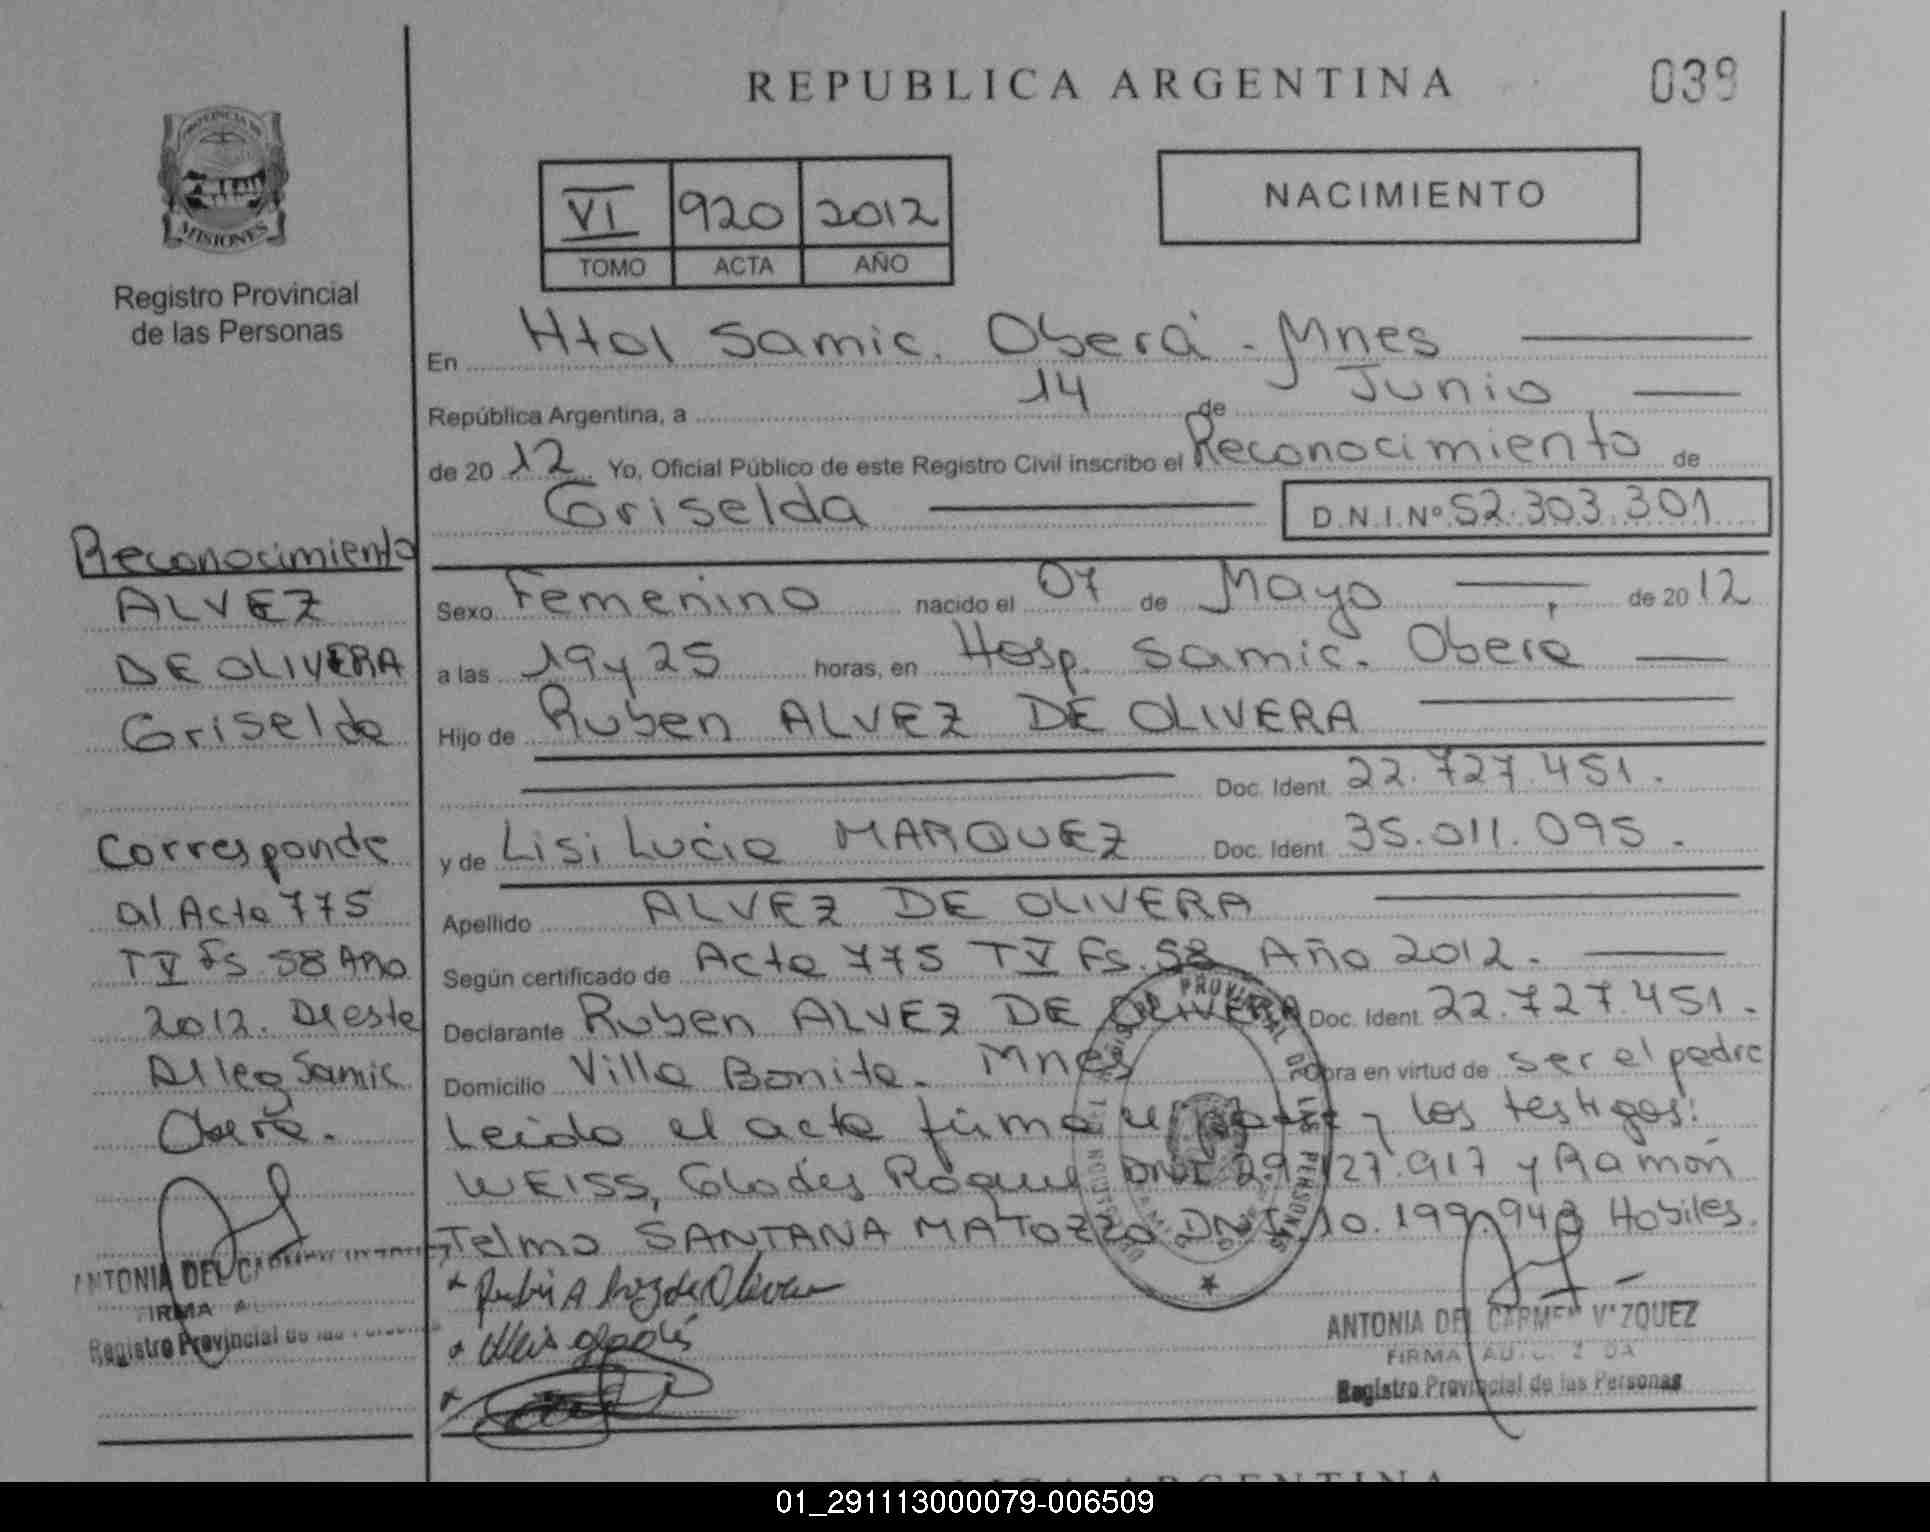 REPUBLICA ARGENTINA
039
PROVINCIA DE
MISIONES
Registro Provincial
de las Personas
VI 920 2012
TOMO ACTA AÑO
NACIMIENTO
En Htol Samic. Oberá - Mnes
República Argentina, a 14 de Junio
de 20 12 Yo, Oficial Público de este Registro Civil inscribo el Reconocimiento de
Griselda D.N.I.Nº 52.303.301
Sexo Femenino nacido el 07 de Mayo de 20 12
a las 19 y 25 horas, en Hosp. Samic. Oberá
Hijo de Ruben ALVEZ DE OLIVERA
Doc. Ident. 22.727.451.
y de Lisi Lucia MARQUEZ Doc. Ident. 35.011.095.
Apellido ALVEZ DE OLIVERA
Según certificado de Acta 775 T V Fs. 58 Año 2012.
Declarante Ruben ALVEZ DE OLIVERA Doc. Ident. 22.727.451.
Domicilio Villa Bonita. Mnes Obra en virtud de ser el padre
Leido el acta firma el padre y los testigos:
WEISS, Gladys Raquel DNI 29.127.917 y Ramón
Telmo SANTANA MATOZZO DNI. 10.199.943 Habiles.
Reconocimiento
ALVEZ
DE OLIVERA
Griselda
Corresponde
al Acta 775
T V Fs 58 Año
2012. De este
Deleg Samic
Oberá.
ANTONIA DEL
FIRMA
Registro Provincial de las Personas
ANTONIA DEL CARMEN VAZQUEZ
FIRMA
Registro Provincial de las Personas
PROVINCIAL DE LAS PERSONAS
REPUBLICA ARGENTINA
01_291113000079-006509